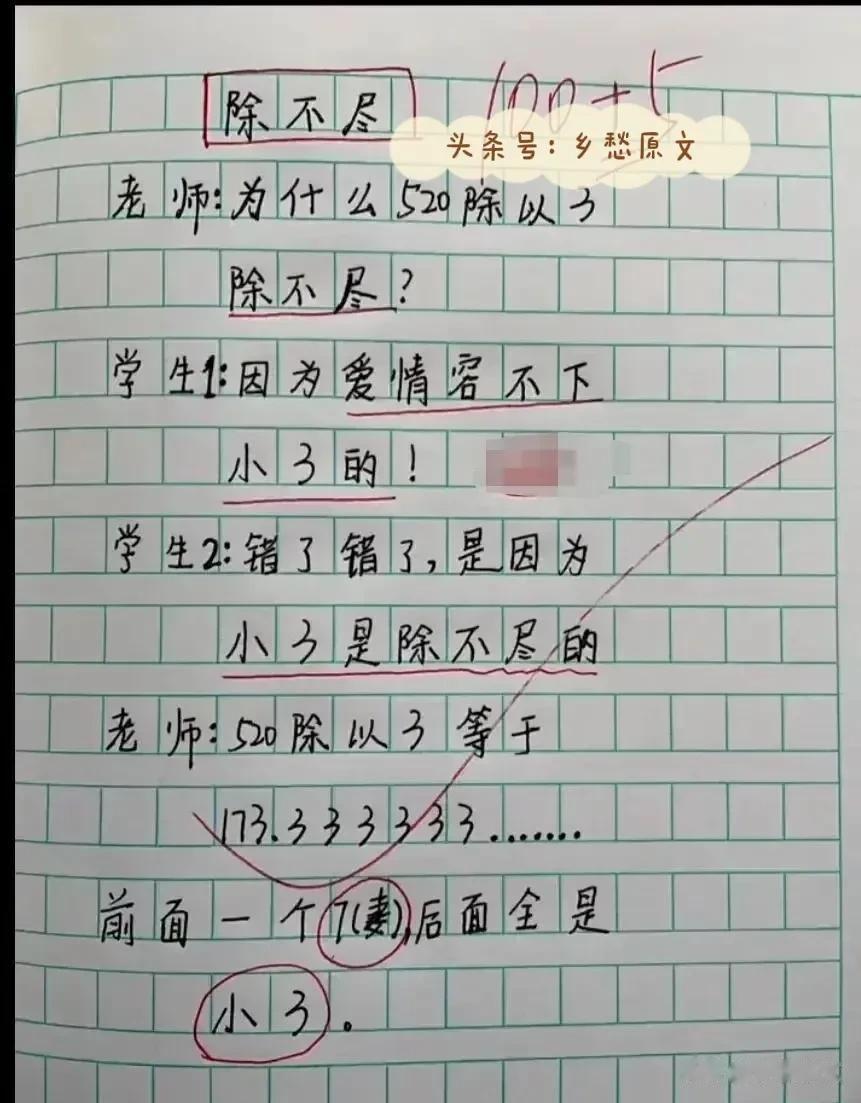 除不尽
100+5
头条号：乡愁原文
老师：为什么520除以3
除不尽？
学生1：因为爱情容不下
小3的！
学生2：错了错了，是因为
小3是除不尽的
老师：520除以3等于
173.333333.......
前面一个7(妻)，后面全是
小3。